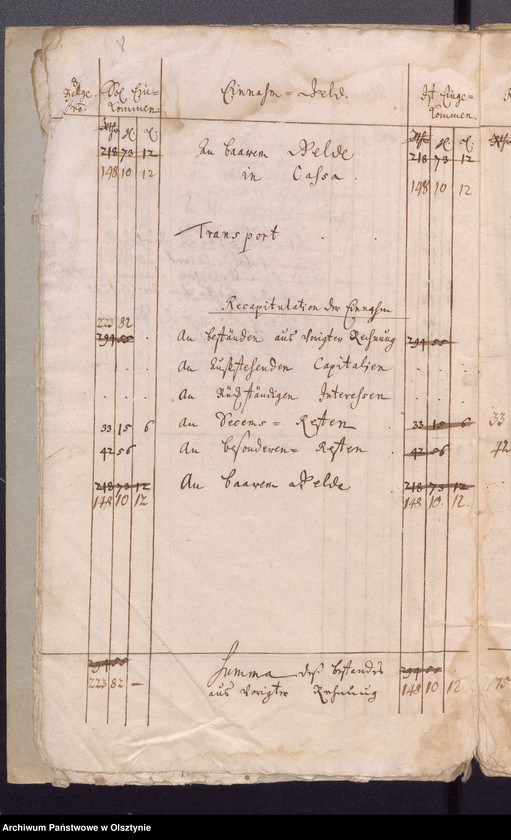 8
Soll Ein= Einnahm=Geld. Ist Einge=
kommen. kommen.
218 73 12 An baarem Gelde 218 73 12
148 10 12 in Cassa. 148 10 12
Transport
Recapitulation der Einnahm
223 82
294 55 An Beständen aus voriger Rechnung 294 55
An Ausstehenden Capitalien
An Rückständigen Interessen
33 15 6 An Decems=Resten 33 15 6
42 56 An besonderen=Resten 42 56
218 73 12 An baarem Gelde 218 73 12
148 10 12 148 10 12.
294 55 Summa des bestandes 294 55
223 82 — aus voriger Rechnung 148 10 12
33
42
Archiwum Państwowe w Olsztynie